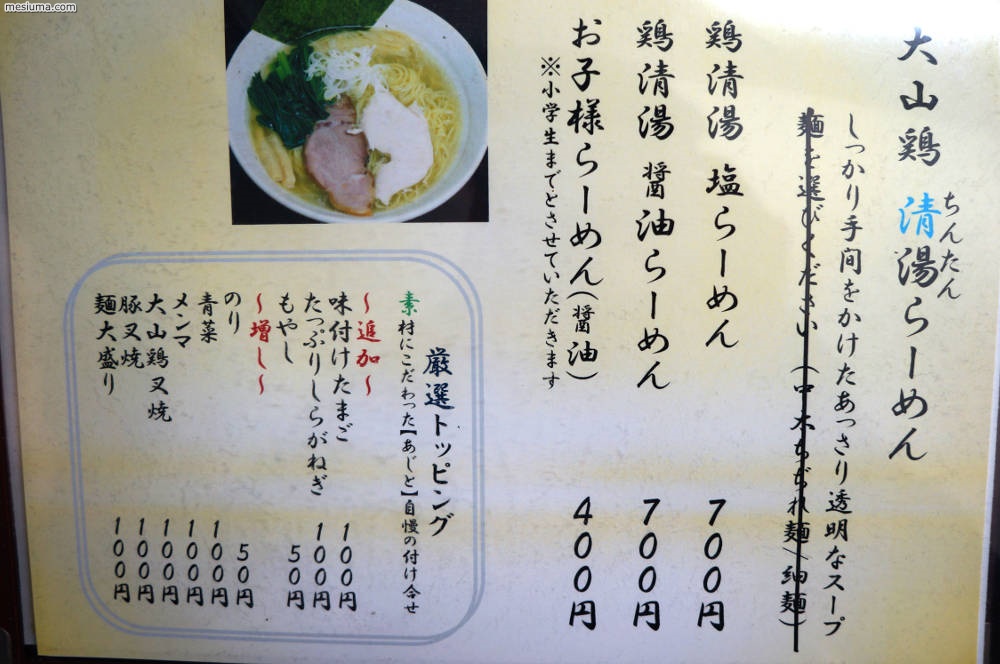 mesiuma.com
大山鶏 清湯らーめん
ちんたん
しっかり手間をかけたあっさり透明なスープ
麺を選びください(中太ちぢれ麺/細麺)
鶏清湯 塩らーめん 700円
鶏清湯 醤油らーめん 700円
お子様らーめん(醤油) 400円
※小学生までとさせていただきます
厳選トッピング
素材にこだわった【あじと】自慢の付け合せ
～追加～
味付けたまご 100円
たっぷりしらがねぎ 100円
もやし 50円
～増し～
のり 50円
青菜 100円
メンマ 100円
大山鶏叉焼 100円
豚叉焼 100円
麺大盛り 100円